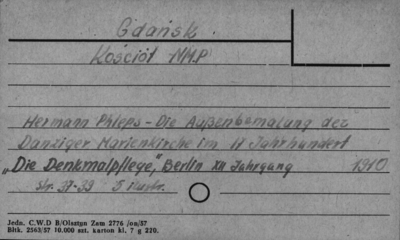 Gdańsk
Kościół NMP
Hermann Phleps - Die Außenbemalung der
Danziger Marienkirche im 11 Jahrhundert
„Die Denkmalpflege," Berlin XII Jahrgang 1910
Str. 37-39 5 ilustr.
Jedn. C.W.D B/Olsztyn Zam 2776 /on/57
Bltk. 2563/57 10.000 szt. karton kl. 7 g 220.